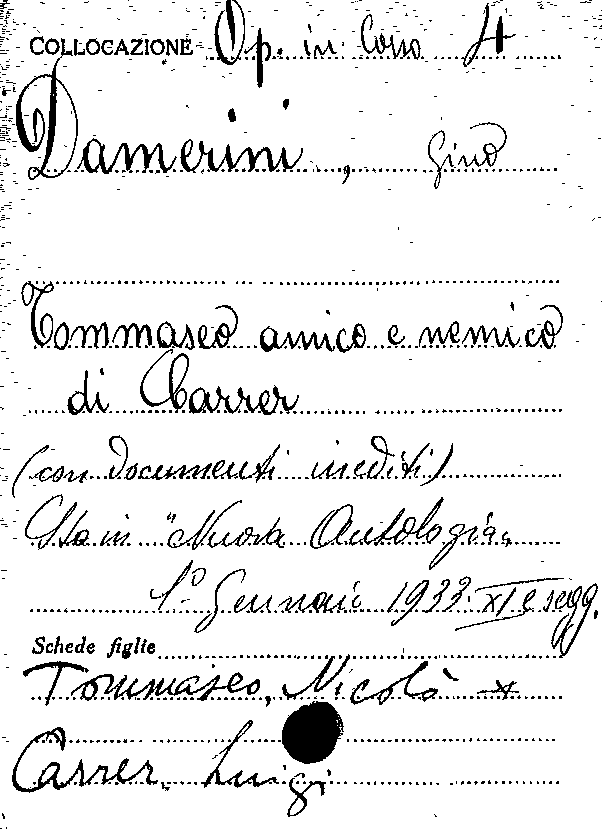 COLLOCAZIONE Op. in Corso 4
Damerini, Gino
Tommaseo amico e nemico
di Carrer
(con documenti inediti)
Sta in "Nuova Antologia"
1º Gennaio 1933. XI e segg.
Schede figlie
Tommaseo, Nicolò x
Carrer, Luigi